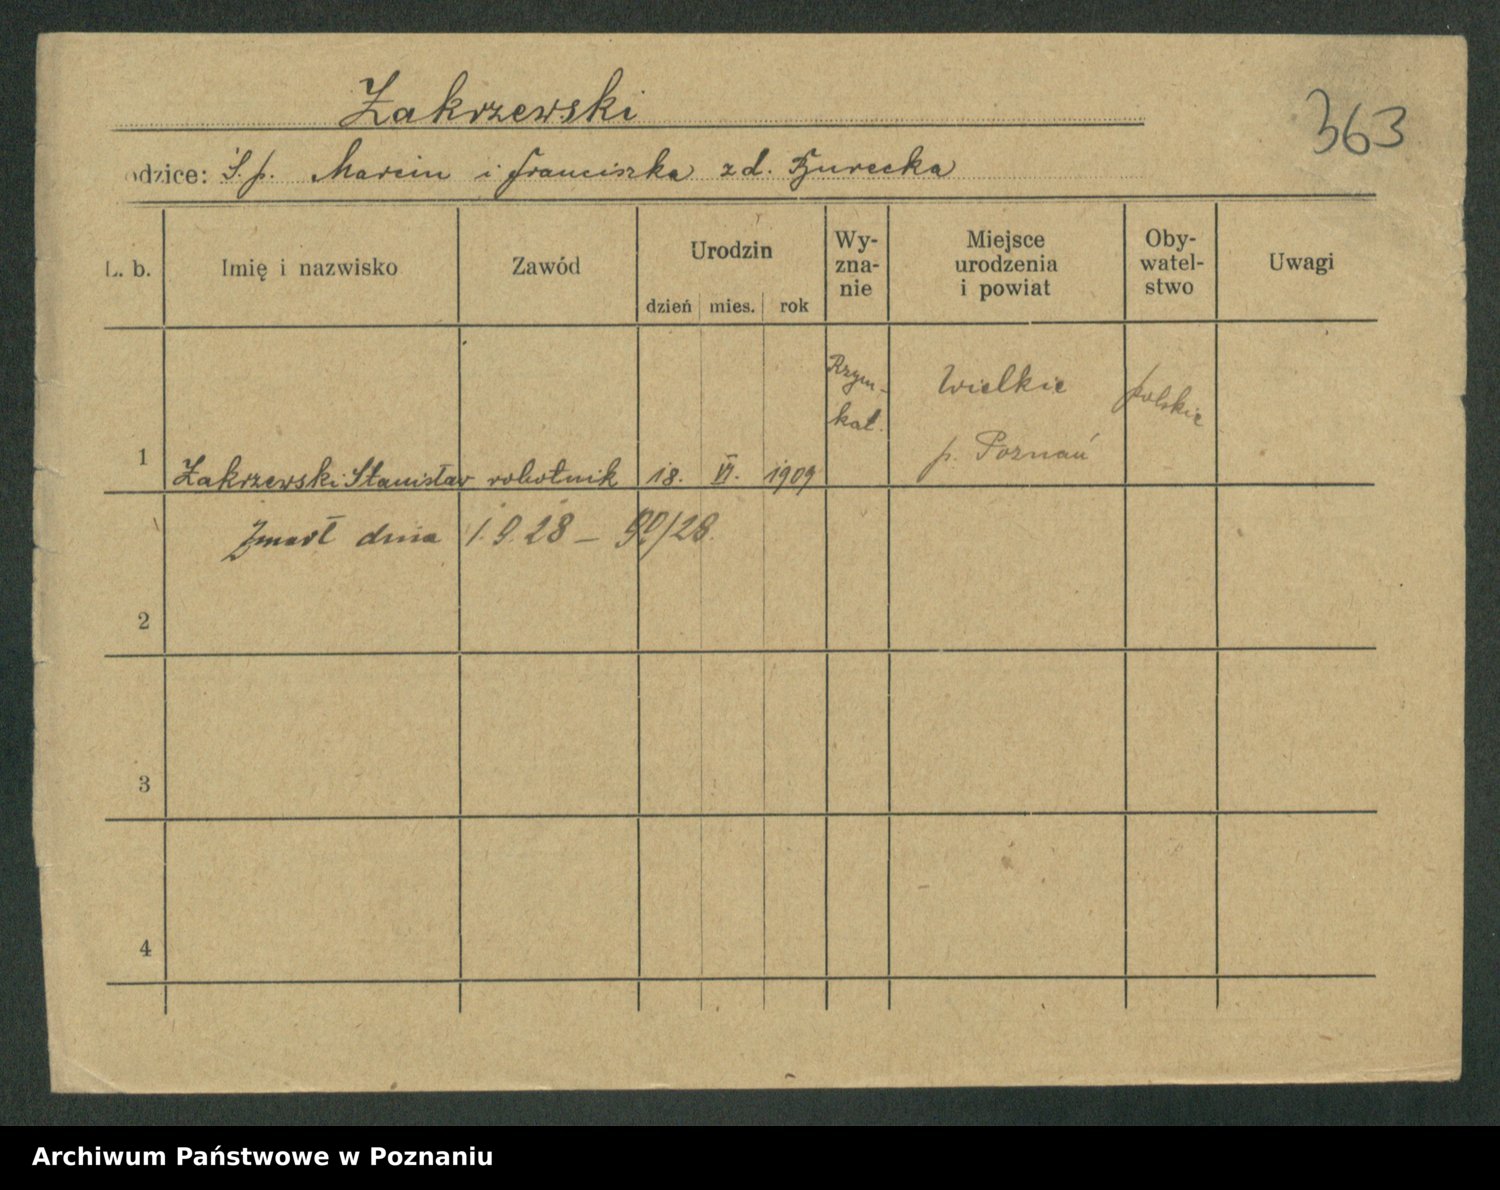 Zakrzewski
363
odzice: Ś.p. Marcin i Franciszka z d.
L. b.
Imię i nazwisko
Zawód
Urodzin
dzień mies. rok
Wy-
zna-
nie
Miejsce
urodzenia
i powiat
Oby-
watel-
stwo
Uwagi
1
Zakrzewski Stanisław
robotnik
18. VI. 1909
Rzym-
kat.
Wielkie
p. Poznań
polskie
Zmarł dnia 1.9.28 – 90/28.
2
3
4
Archiwum Państwowe w Poznaniu